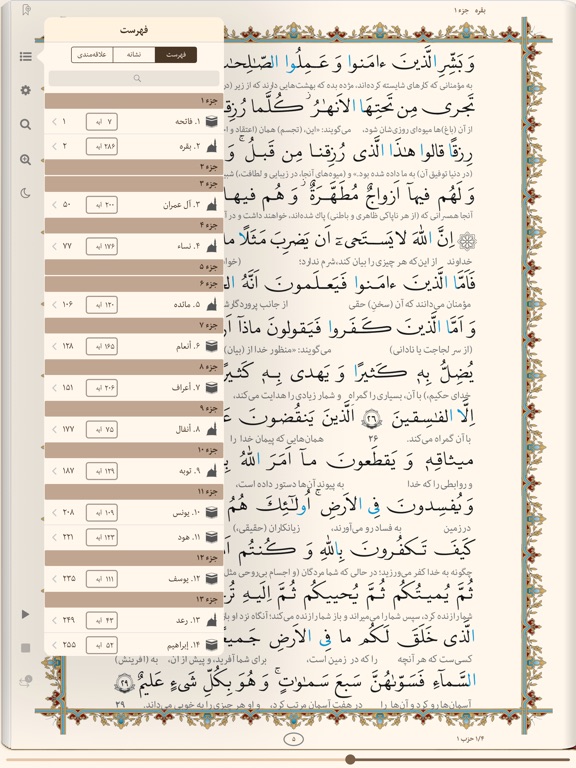 بقره جزء ۱
فهرست
فهرست
نشانه
علاقه‌مندی
جزء ۱
۱. فاتحه ۷ آیه ۱
۲. بقره ۲۸۶ آیه ۲
جزء ۲
جزء ۳
۳. آل عمران ۲۰۰ آیه ۵۰
جزء ۴
۴. نساء ۱۷۶ آیه ۷۷
جزء ۵
جزء ۶
۵. مائده ۱۲۰ آیه ۱۰۶
جزء ۷
۶. أنعام ۱۶۵ آیه ۱۲۸
جزء ۸
۷. أعراف ۲۰۶ آیه ۱۵۱
جزء ۹
۸. أنفال ۷۵ آیه ۱۷۷
جزء ۱۰
۹. توبه ۱۲۹ آیه ۱۸۷
جزء ۱۱
۱۰. یونس ۱۰۹ آیه ۲۰۸
۱۱. هود ۱۲۳ آیه ۲۲۱
جزء ۱۲
۱۲. یوسف ۱۱۱ آیه ۲۳۵
جزء ۱۳
۱۳. رعد ۴۳ آیه ۲۴۹
۱۴. إبراهیم ۵۲ آیه ۲۵۵
وَ بَشِّرِ الَّذینَ ءامَنوا وَ عَمِلُوا الصّٰلِحٰتِ
به مؤمنانی که کارهای شایسته کرده‌اند، مژده بده که بهشت‌هایی دارند که از زیر
تَجری مِن تَحتِهَا الاَنهٰرُ کُلَّما رُزِقوا
از آن (باغ)ها میوه‌ای روزی‌شان شود، می‌گویند: «این، (تجسم) همان (اعتقاد و
رِزقًا قالوا هٰذَا الَّذی رُزِقنا مِن قَبلُ وَ
(در دنیا توفیق آن) به ما داده شده بود.» و (میوه‌های آنجا، در زیبایی و لطافت،)
وَ لَهُم فیهآ اَزواجٌ مُطَهَّرَةٌ وَ هُم فیها
آنجا همسرانی که (از هر ناپاکی ظاهری و باطنی) پاک شده‌اند، خواهند داشت و در
اِنَّ اللّٰهَ لا یَستَحیۦٓ اَن یَضرِبَ مَثَلًا ما
خداوند از این‌که هر چیزی را بیان کند، شرم ندارد؛
فَاَمَّا الَّذینَ ءامَنوا فَیَعلَمونَ اَنَّهُ
مؤمنان می‌دانند که آن (سخن) حقی از جانب پروردگار
وَ اَمَّا الَّذینَ کَفَروا فَیَقولونَ ماذآ
(از سر لجاجت یا نادانی) می‌گویند: «منظور خدا از (بیان)
یُضِلُّ بِهٖ کَثیرًا وَ یَهدی بِهٖ کَثیرًا
خدای حکیم،) با آن، بسیاری را گمراه و شمار زیادی را هدایت می‌کند،
اِلَّا الفٰسِقینَ ۲۶ اَلَّذینَ یَنقُضونَ
با آن گمراه می‌کند. ۲۶ همان‌هایی که پیمان خدا را
میثاقِهٖ وَ یَقطَعونَ مآ اَمَرَ اللّٰهُ
و روابطی را که خدا به پیوند آن‌ها دستور داده است،
وَ یُفسِدونَ فِی الاَرضِ اُولٰٓئِکَ هُمُ
در زمین به فساد رو می‌آورند، زیانکاران (حقیقی،)
کَیفَ تَکفُرونَ بِاللّٰهِ وَ کُنتُم
چگونه به خدا کفر می‌ورزید؛ در حالی که شما مردگان (و اجسام بی‌روحی
ثُمَّ یُمیتُکُم ثُمَّ یُحییکُم ثُمَّ اِلَیهِ
شما را زنده کرد، سپس شما را می‌میراند و باز شما را زنده می‌کند؛ آنگاه نزد او
الَّذی خَلَقَ لَکُم ما فِی الاَرضِ جَمیعًا
کسی‌ست که هر آنچه را که در زمین است، برای شما آفرید، و پیش از آن، به (آفرینش)
السَّمآءِ فَسَوّٰىهُنَّ سَبعَ سَمٰوٰتٍ وَ هُوَ بِکُلِّ شَیءٍ عَلیمٌ ۲۹
آسمان‌ها رو کرد و آن‌ها را در هفت آسمان مرتب کرد، و او هر چیزی را به خوبی می‌داند. ۲۹
۵
۱/۴ حزب ۱